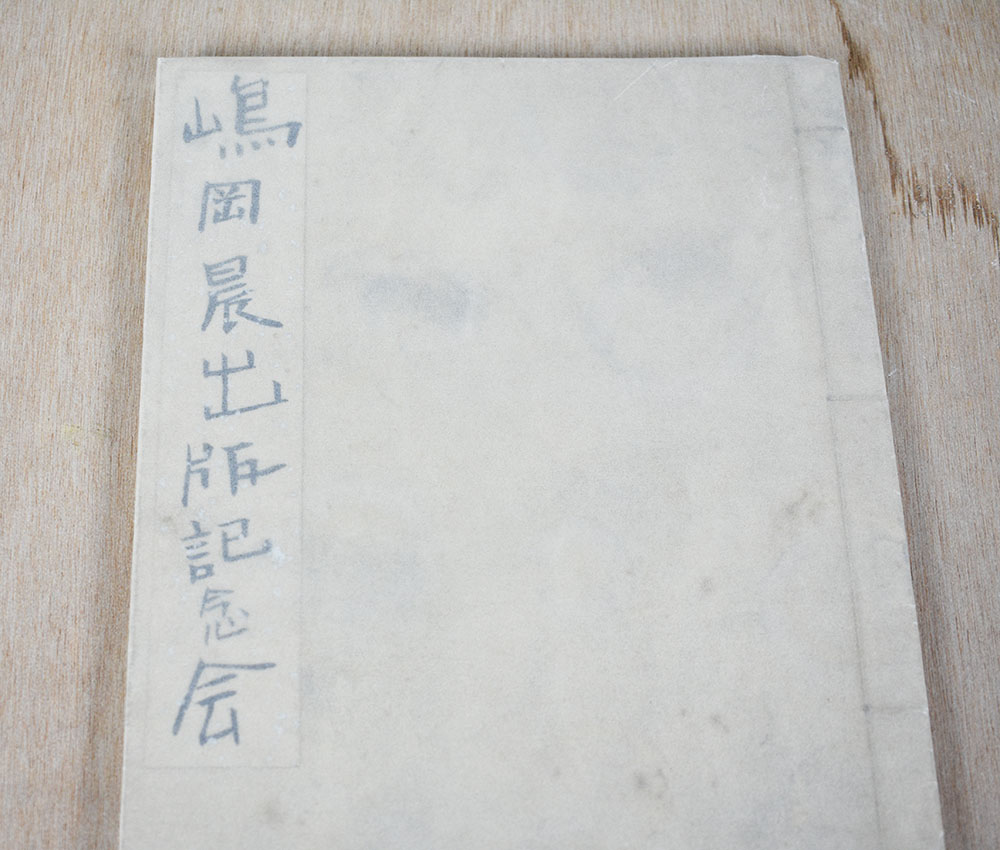 嶋岡晨出版記念会